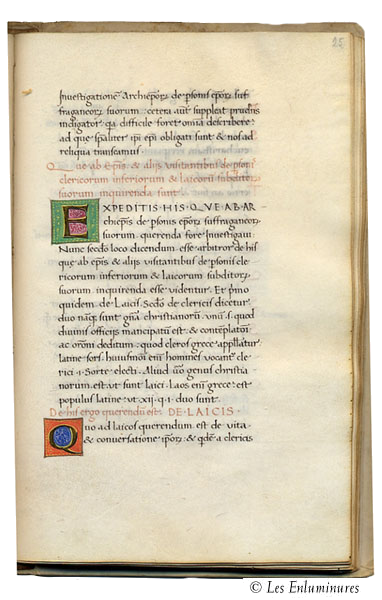 25
Investigatione Archiepor de psonis epor suf
fraganeor suorum: cetera aut suppleat prudens
indigator qa difficile foret omia describere:
ad que spaliter ipi epi obligati sunt & nos ad
reliqua transeamus.
Que ab Epis & alijs visitantibus de psonis
clericorum inferiorum & laicoru subditor
suorum inquirenda sunt.
EXPEDITIS HIS QVE AB AR
chiepis de psonis epor suffraganeor
suorum querenda fore investigaui
Nunc secdo loco dicendum esse arbitror de his
que ab epis & alijs visitantibus de psonis cle
ricorum inferiorum & laicorum subditor
suorum inquirenda esse videntur. Et pmo
quidem de Laicis. Secdo de clericis dicetur
duo nanq sunt gna christianoru. vnu s. quod
duuinis officijs mancipatu est. & contemplatoi
ac oroni deditum: quod cleros grece appellatur
latine sors. huiusmoi eni homines vocant cle
rici .i. Sorte electi. Aliud uo genus christia
norum est ut sunt laici. Laos eni grece: est
populus latine: vt xij. q. i. duo sunt.
De his ergo querendu est. DE LAICIS.
Quo ad laicos querendum est de vita
& conversatione ipor: & qde a clericis
© Les Enluminures